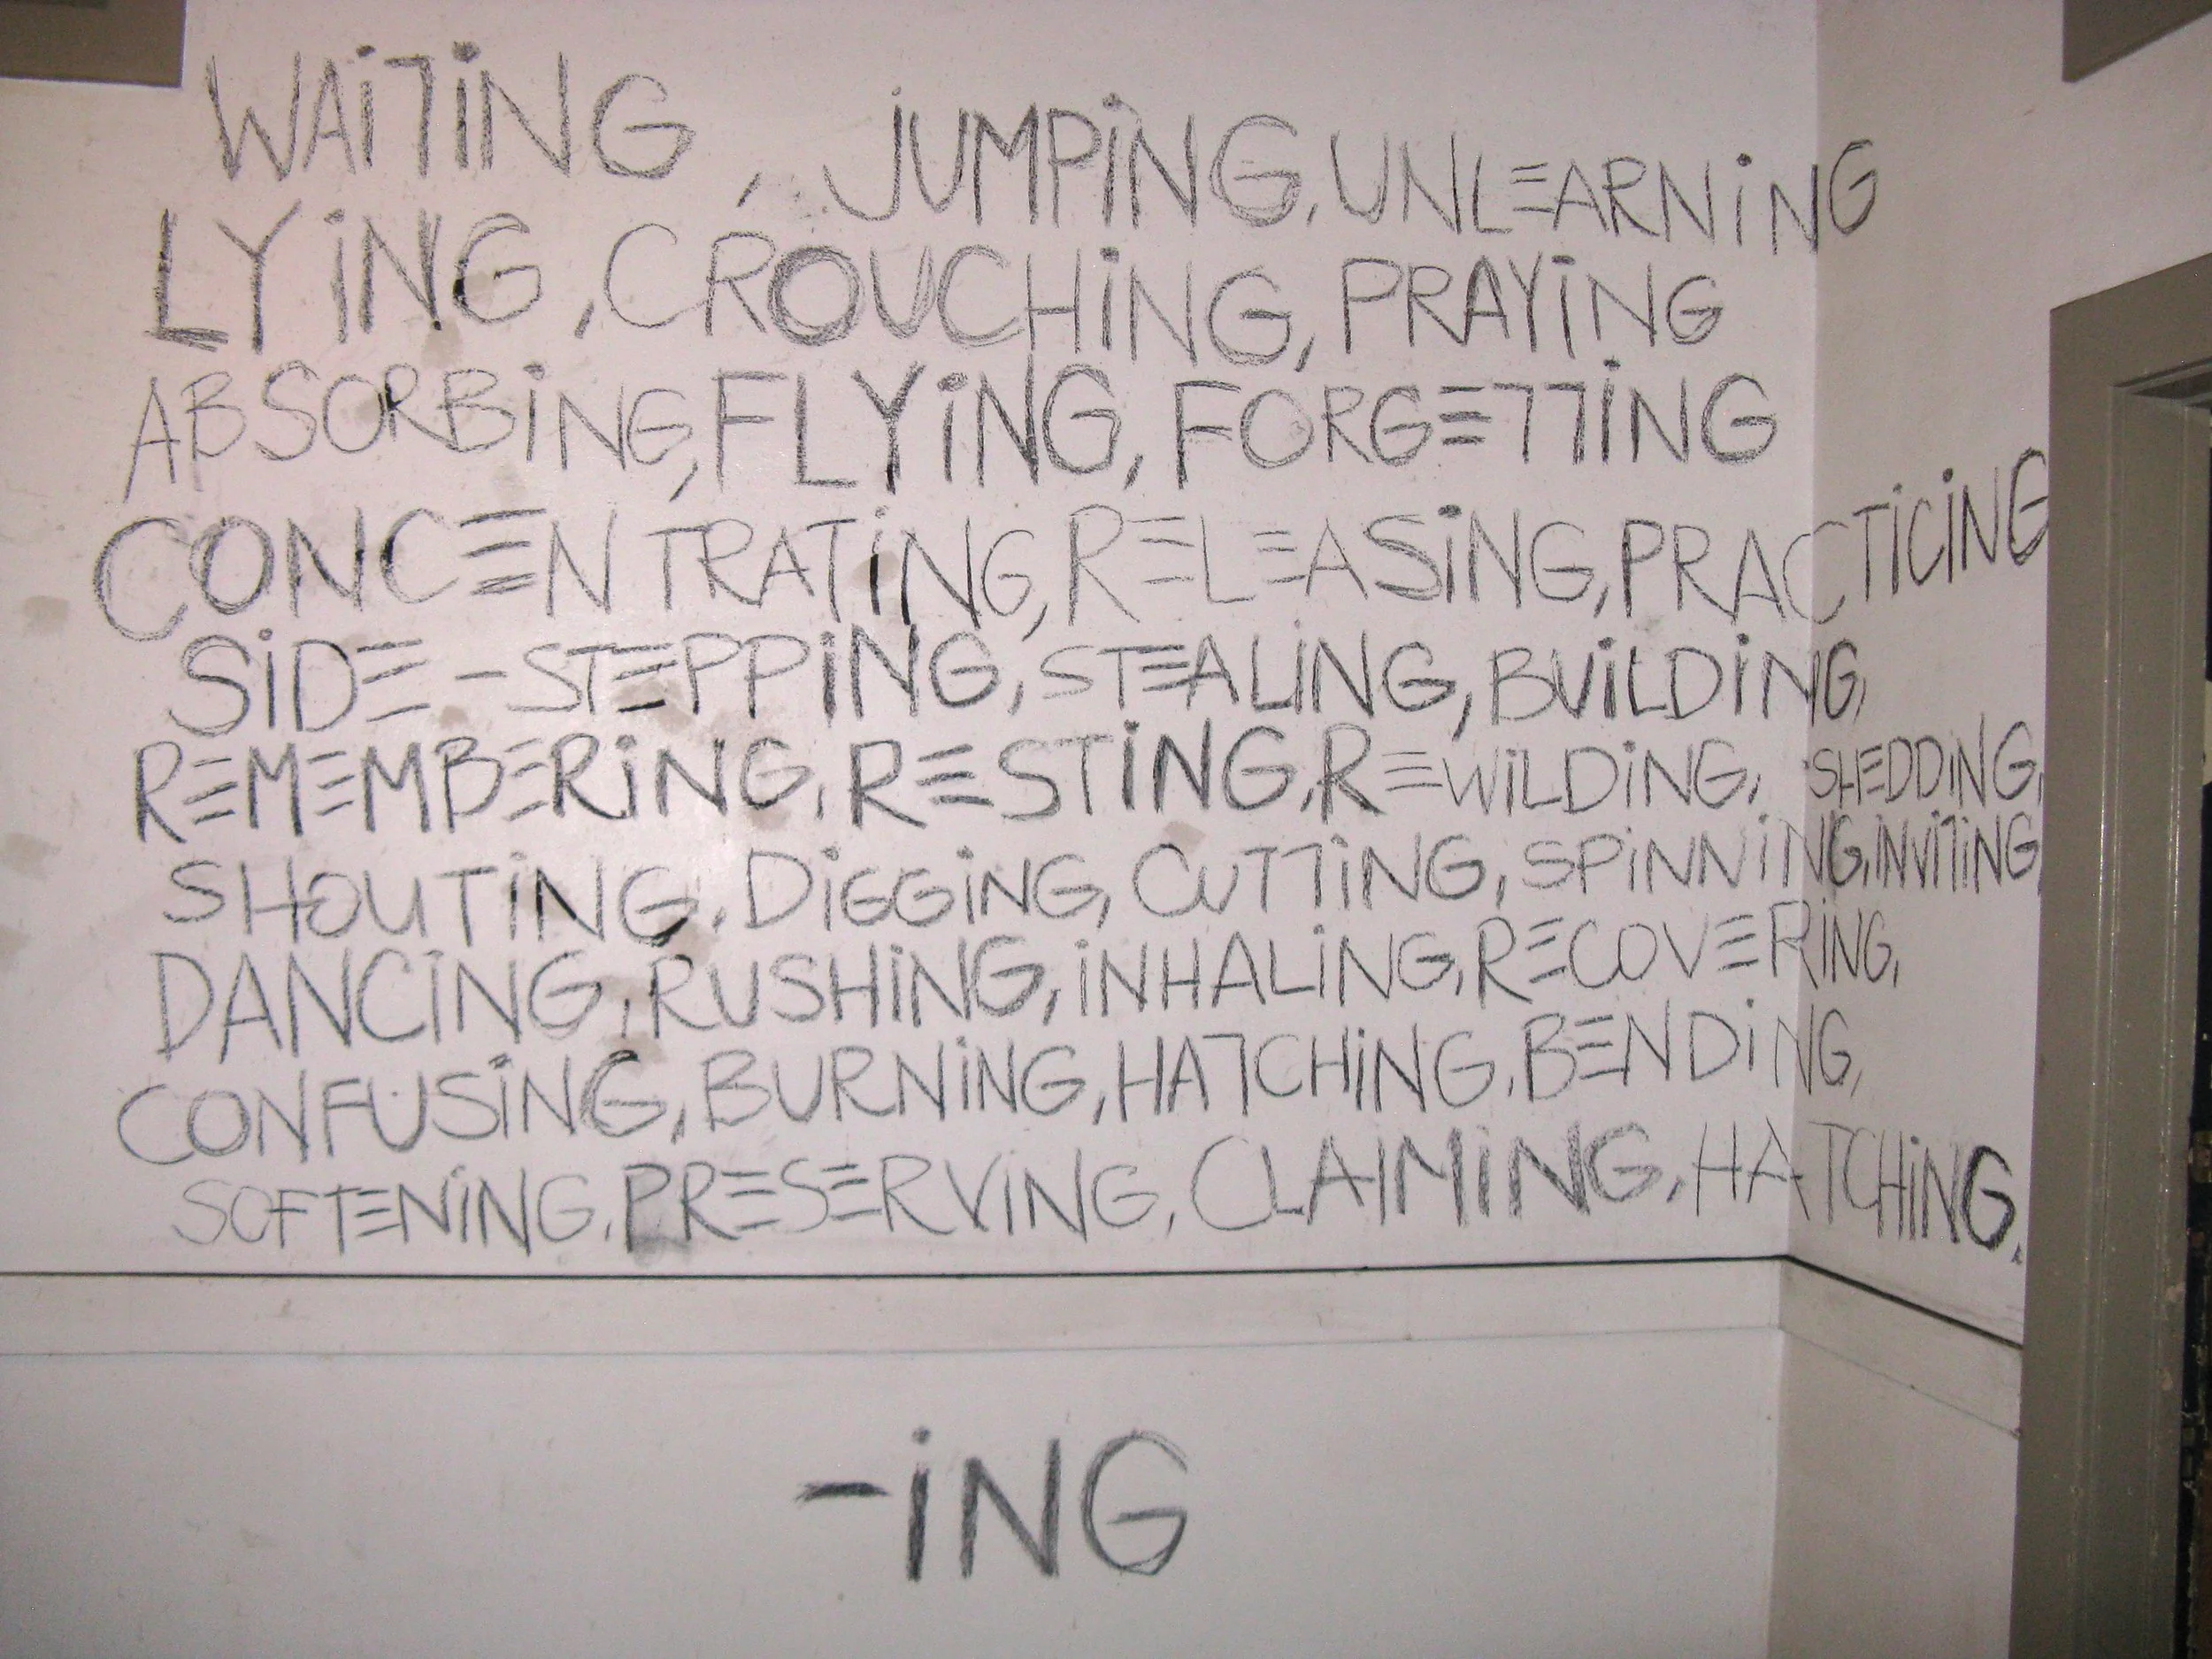 WAiTiNG, JUMPiNG, UNLEARNiNG
LYiNG, CROUCHiNG, PRAYiNG
ABSORBiNG, FLYiNG, FORGETTiNG
CONCENTRATiNG, RELEASiNG, PRACTiCiNG
SiDE-STEPPiNG, STEALiNG, BUiLDiNG,
REMEMBERiNG, RESTiNG, REWiLDiNG, SHEDDiNG,
SHOUTiNG, DiGGiNG, CUTTiNG, SPiNNiNG, iNViTiNG,
DANCiNG, RUSHiNG, iNHALiNG, RECOVERiNG,
CONFUSiNG, BURNiNG, HATCHiNG, BENDiNG,
SOFTENiNG, PRESERViNG, CLAIMiNG, HATCHiNG,
-iNG